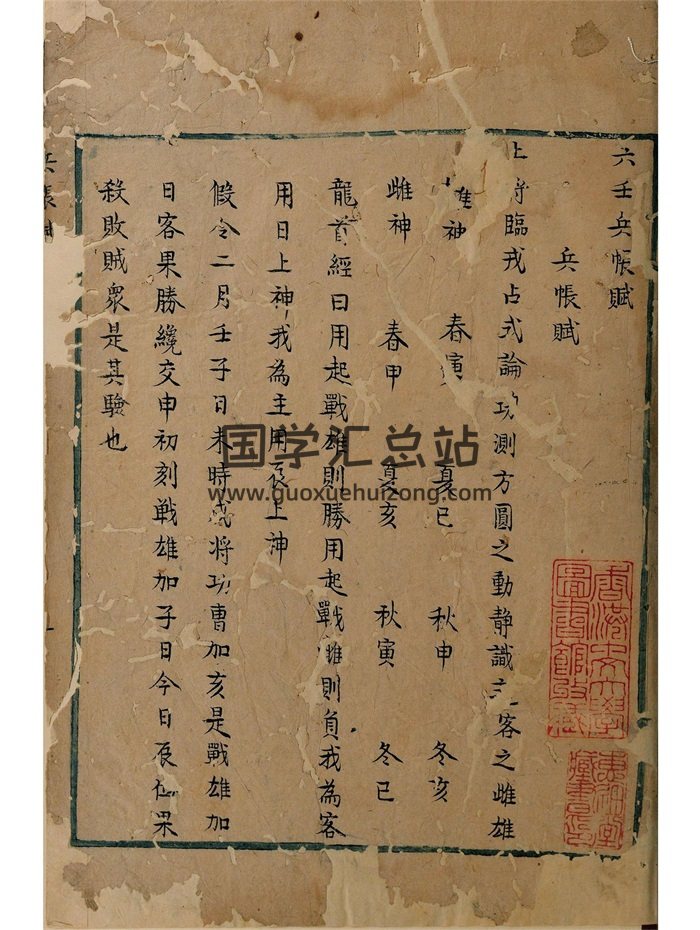 六壬兵帳賦
兵帳賦
上將臨戎占式論功測方圓之動靜識主客之雌雄
雄神 春寅 夏巳 秋申 冬亥
雌神 春申 夏亥 秋寅 冬巳
龍首經曰用起戰雄則勝用起戰雌則負我為客
用日上神我為主用辰上神
假令二月壬子日未時戌將功曹加亥是戰雄加
日客果勝纔交申初刻戰雄加子日今日辰位果
殺敗賊眾是其驗也
兵帳賦
國学汇总站
www.guoxuehuizong.com
香港中文大學
圖書館所藏
藏書印